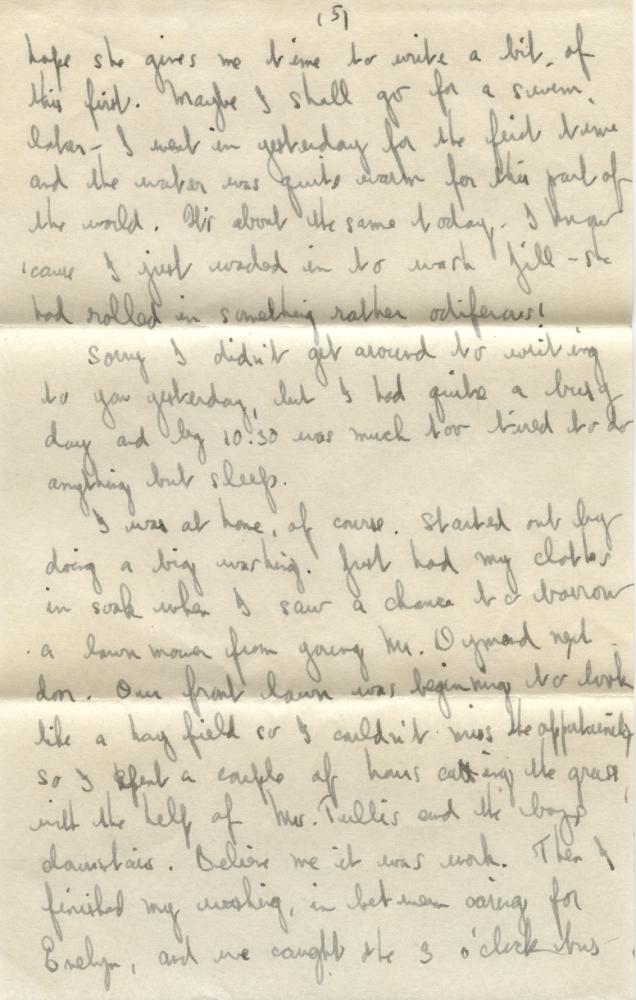 (5)
hope she gives me time to write a bit of
this first. Maybe I shall go for a swim
later - I went in yesterday for the first time
and the water was quite warm for this part of
the world. It's about the same today. I know
'cause I just waded in to wash Jill - she
had rolled in something rather odiferous!
Sorry I didn't get around to writing
to you yesterday, but I had quite a busy
day and by 10:30 was much too tired to do
anything but sleep.
I was at home, of course. Started out by
doing a big washing. Just had my clothes
in soak when I saw a chance to borrow
a lawn mower from young Mr. Dymond next
door. Our front lawn was beginning to look
like a hay field so I couldn't miss the opportunity
so I spent a couple of hours cutting the grass
with the help of Mrs. Tullis and the boys
downstairs. Believe me it was work. Then I
finished my washing, in between caring for
Evelyn, and we caught the 3 o'clock bus